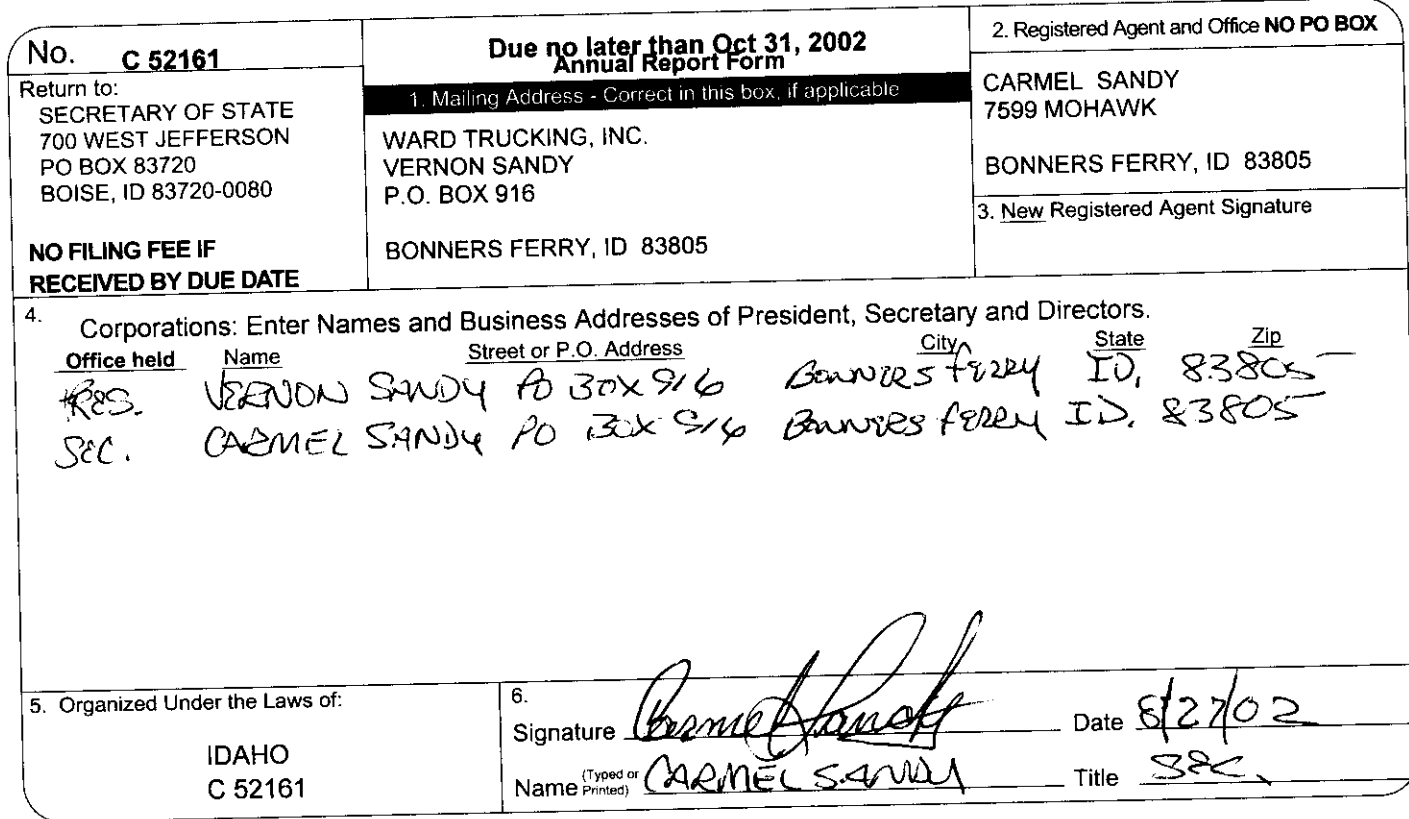 No. C 52161
Return to:
SECRETARY OF STATE
700 WEST JEFFERSON
PO BOX 83720
BOISE, ID 83720-0080
NO FILING FEE IF
RECEIVED BY DUE DATE
Due no later than Oct 31, 2002
Annual Report Form
1. Mailing Address - Correct in this box, if applicable
WARD TRUCKING, INC.
VERNON SANDY
P.O. BOX 916
BONNERS FERRY, ID 83805
2. Registered Agent and Office NO PO BOX
CARMEL SANDY
7599 MOHAWK
BONNERS FERRY, ID 83805
3. New Registered Agent Signature
4. Corporations: Enter Names and Business Addresses of President, Secretary and Directors.
Office held Name Street or P.O. Address City State Zip
PRES. VERNON SANDY PO BOX 916 BONNERS FERRY ID, 83805
SEC. CARMEL SANDY PO BOX 916 BONNERS FERRY ID. 83805
5. Organized Under the Laws of:
IDAHO
C 52161
6.
Signature Carmel Sandy Date 8/27/02
Name (Typed or Printed) CARMEL SANDY Title SEC.